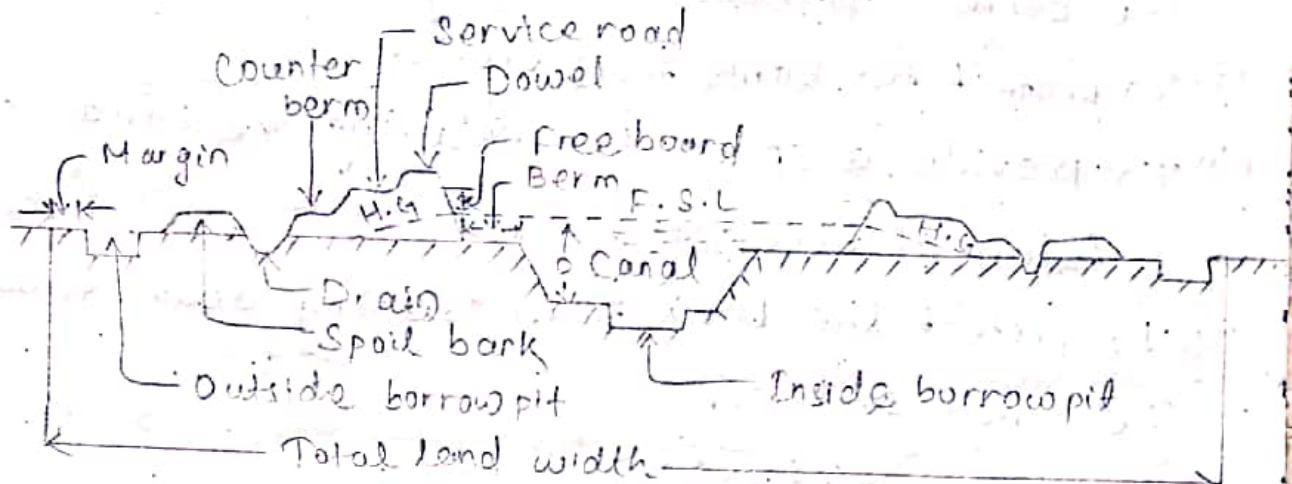 Service road
Counter berm
Dowel
Margin
Free board
Berm
F.S.L
H.G
H.G
D
Canal
Drain
Spoil bark
Outside borrowpit
Inside burrowpit
Total lend width